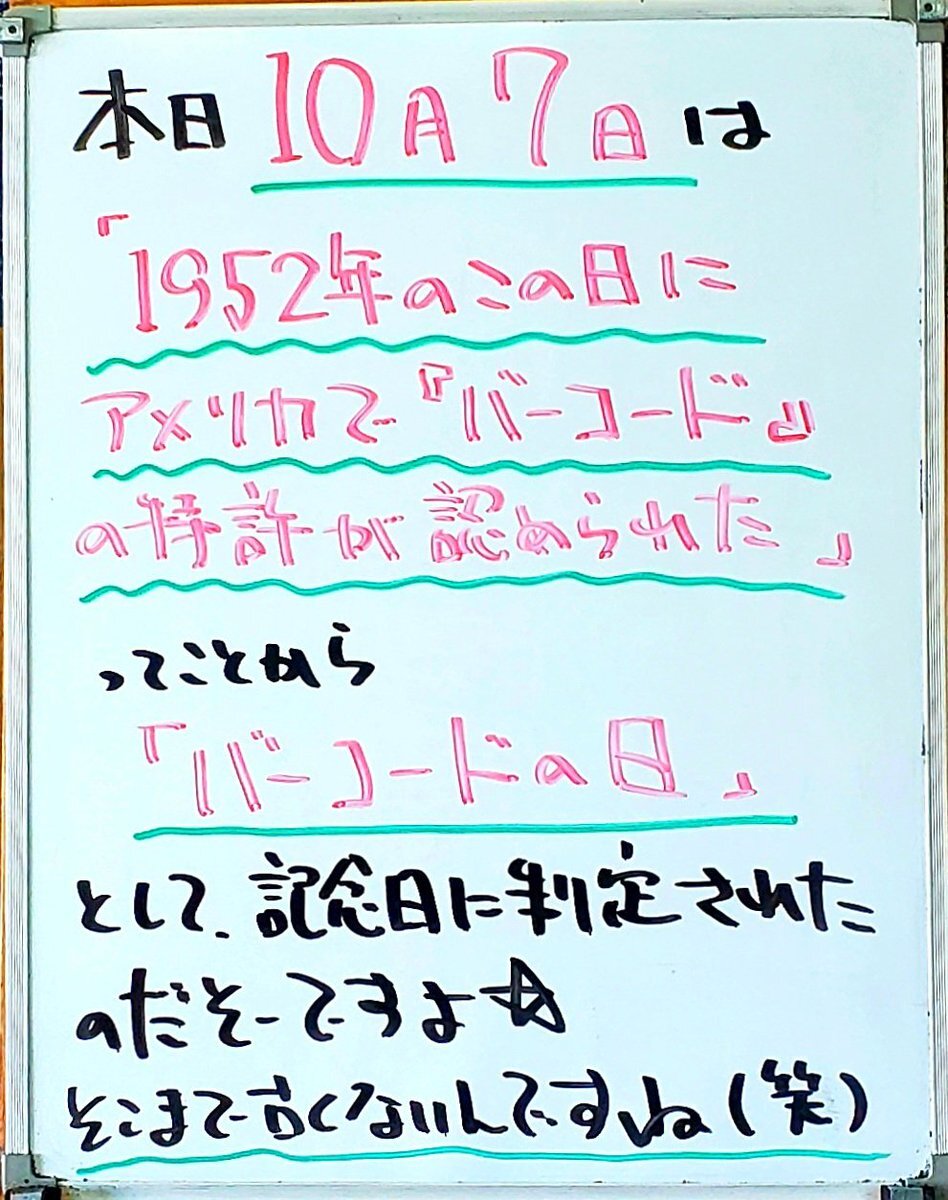 本日10月7日は
「1952年のこの日に
アメリカで『バーコード』
の特許が認められた」
ってことから
「バーコードの日」
として、記念日に判定された
のだそーですよ☆
そこまで古くないんですね(笑)